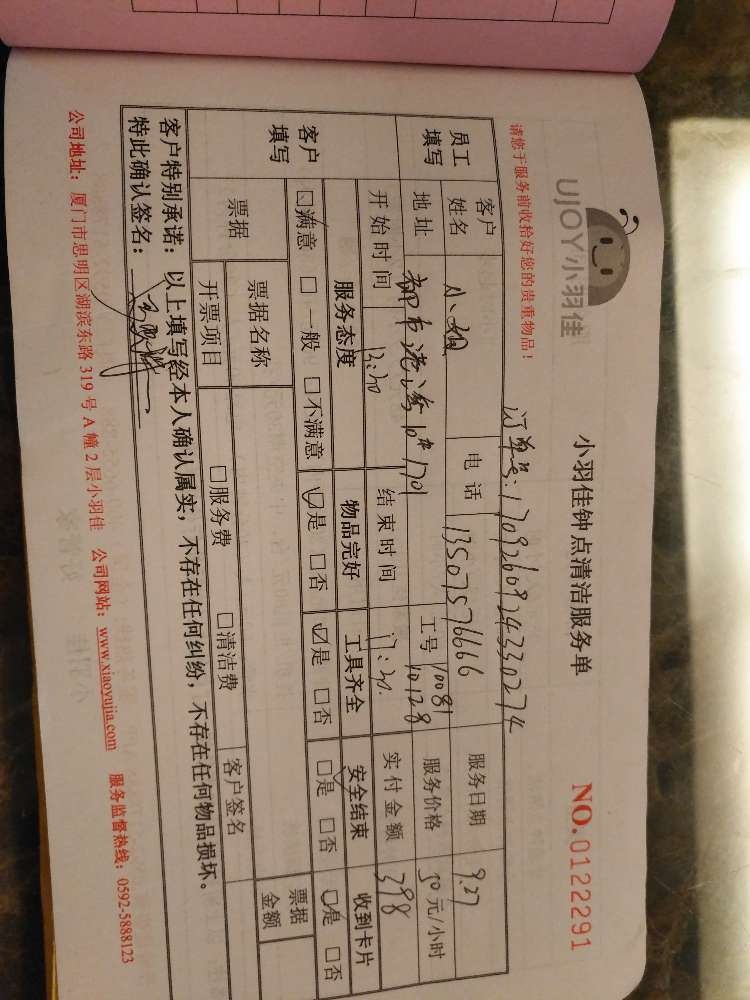 UJOY小羽佳
小羽佳钟点清洁服务单
NO.0122291
请您于服务前收拾好您的贵重物品!
订单号:170926092433027４
员工填写 客户姓名 小姐 电话 13507576666 服务日期 9.27
地址 都市港湾10#1701 工号 10081 10128 服务价格 50元/小时
客户填写 开始时间 13:30 结束时间 17:30 实付金额 398
服务态度 物品完好 工具齐全 安全结束 收到卡片
☑满意 □一般 □不满意 ☑是 □否 ☑是 □否 ☑是 □否 ☑是 □否
票据 票据名称 票据金额
开票项目 □服务费 □清洁费 客户签名
客户特别承诺:以上填写经本人确认属实,不存在任何纠纷,不存在任何物品损坏。
特此确认签名:
公司地址:厦门市思明区湖滨东路319号A幢2层小羽佳 公司网站:www.xiaoyujia.com 服务监督热线:0592-5888123